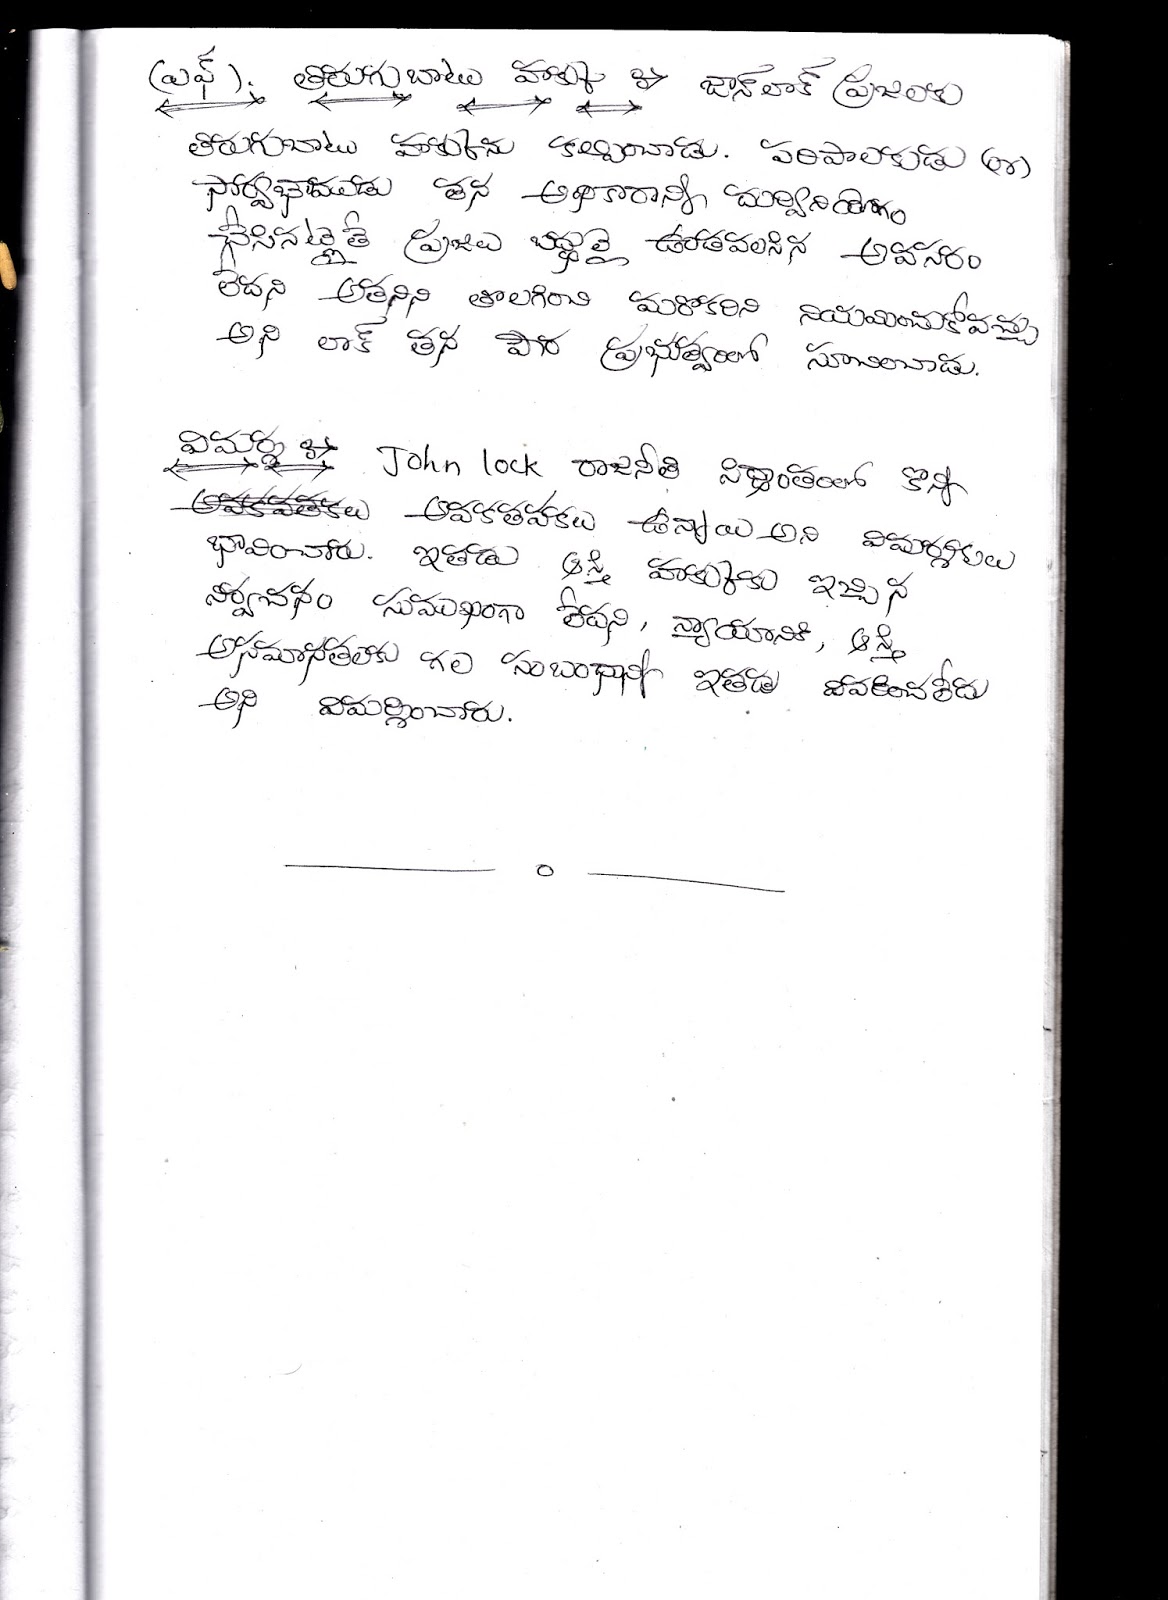 (ఎఫ్). తిరుగుబాటు హక్కు :→ జాన్‌లాక్ ప్రజలకు
తిరుగుబాటు హక్కును కల్పించాడు. పరిపాలకుడు (లేదా)
సార్వభౌముడు తన అధికారాన్ని దుర్వినియోగం
చేసినట్లైతే ప్రజలు బద్ధులై ఉండవలసిన అవసరం
లేదని అతనిని తొలగించి మరొకరిని నియమించుకోవచ్చు
అని లాక్ తన పౌర ప్రభుత్వంలో సూచించాడు.
విమర్శ :→ John lock రాజనీతి సిద్ధాంతంలో కొన్ని
అవకతవకలు ఉన్నాయి అని విమర్శకులు
భావించారు. ఇతడు ఆస్తి హక్కుకు ఇచ్చిన
నిర్వచనం సుముఖంగా లేదని, న్యాయానికి, ఆస్తి
అసమానతలకు గల సంబంధాన్ని ఇతడు వివరించలేదు
అని విమర్శించారు.